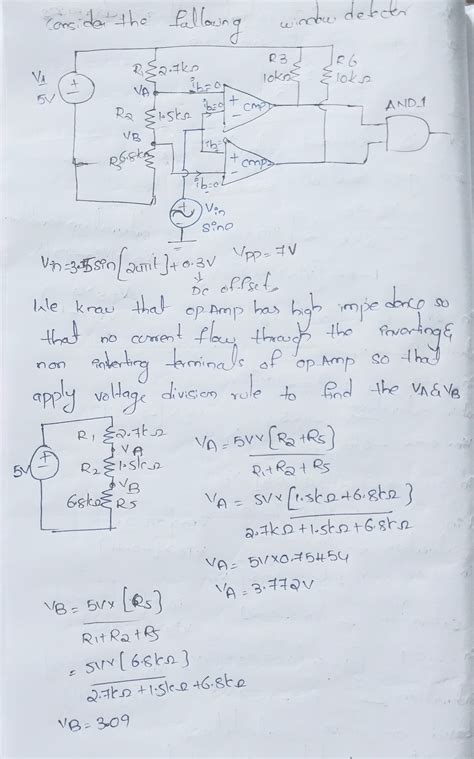 consider the following window detecter
V1
5V
R1 2.7kΩ
VA
ib=0
R2 1.5kΩ
VB
R5 6.8kΩ
ib=0
ib=0
ib=0
+
-
CMP1
+
-
CMP2
R3
10kΩ
R6
10kΩ
AND.1
Vin
sine
sin[2πft]+0.3V Vpp=7V
DC offset
We know that opAmp has high impedance so
that no current flow through the inverting &
non inverting terminals of opAmp so that
apply voltage division rule to find the VA & VB
5V
R1 2.7kΩ
VA
R2 1.5kΩ
VB
6.8kΩ R5
VA = 5V×[R2+R5]
R1+R2+R5
VA = 5V×[1.5kΩ+6.8kΩ]
2.7kΩ+1.5kΩ+6.8kΩ
VA = 5V×0.75454
VA = 3.772V
VB = 5V×[R5]
R1+R2+R5
= 5V×[6.8kΩ]
2.7kΩ+1.5kΩ+6.8kΩ
VB = 3.09